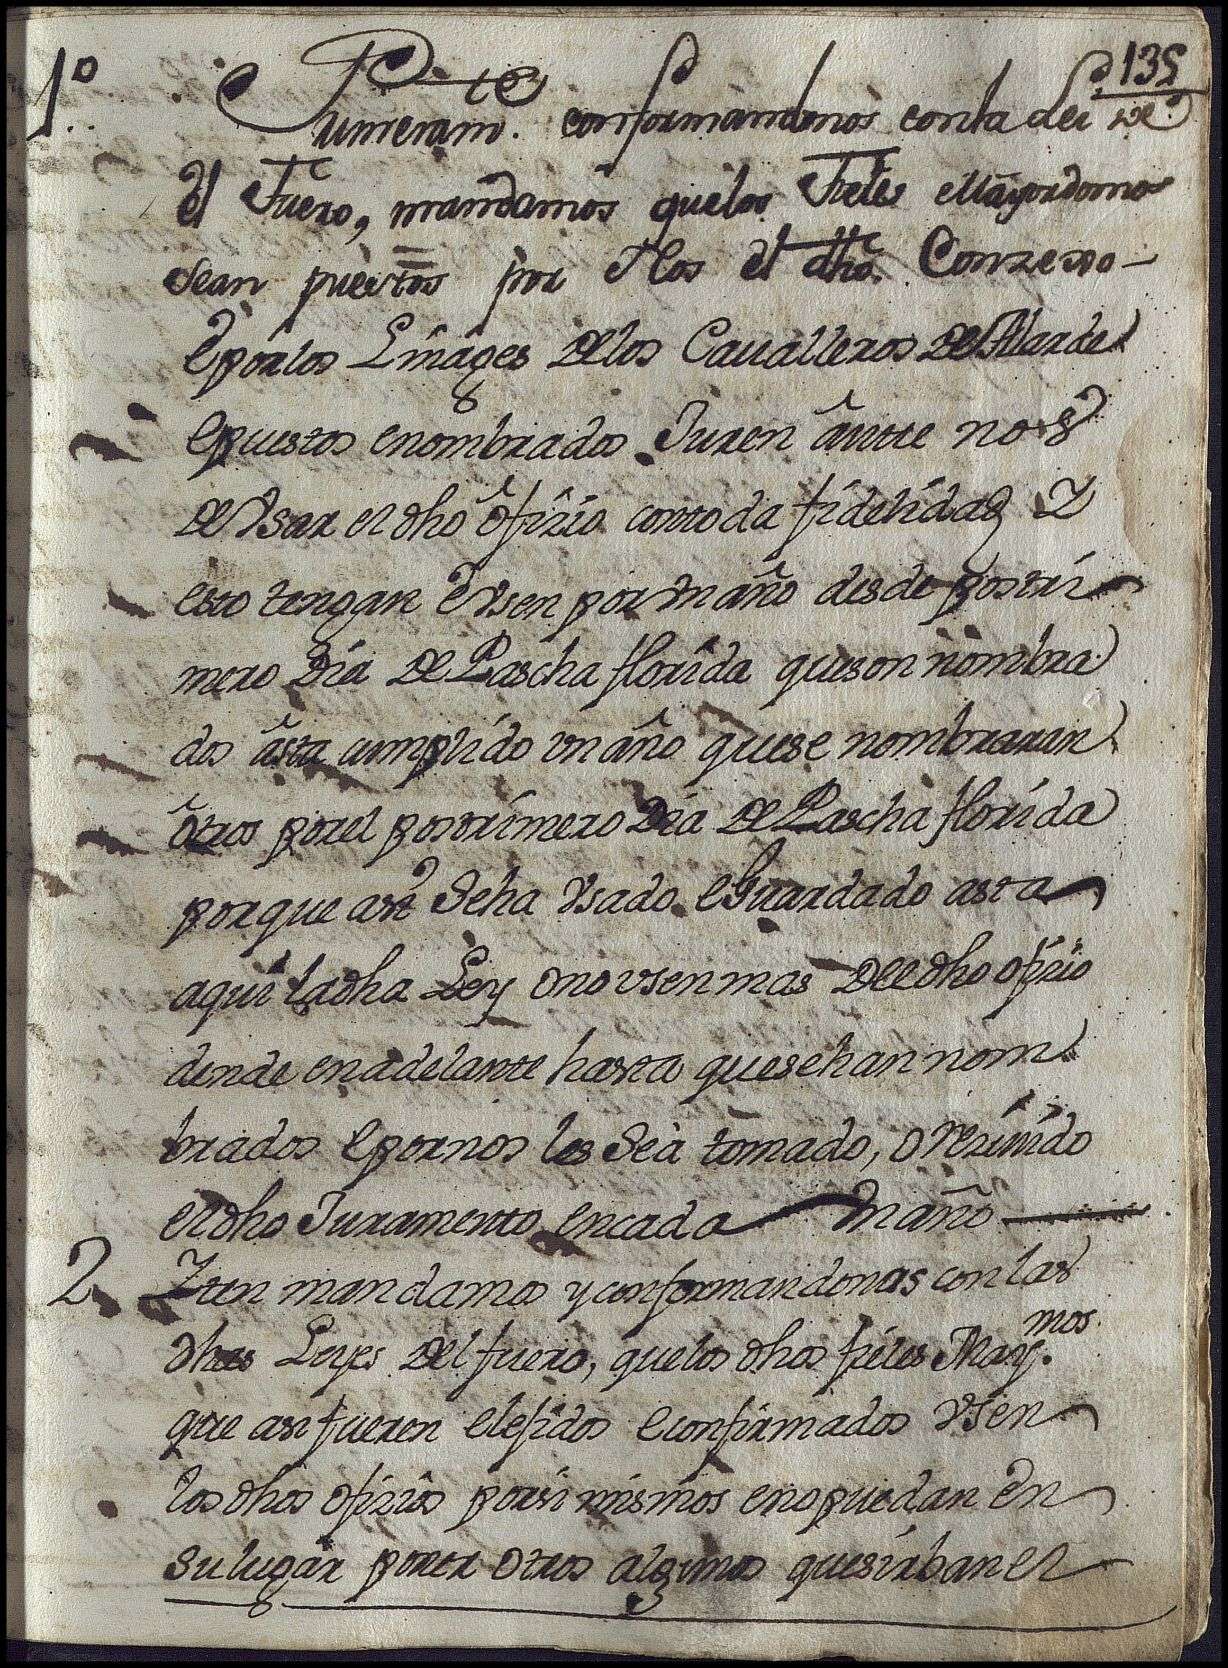 135
1º Primeram.te conformandonos conla Lei de
el Fuero, mandamos quelos Fieles e Mayordomos
sean puestos por Nos el dho. Conzexo
e por los Linages de los Caualleros de Alarde
e puestos e nombrados Juren ante nos
de Vsar el dho ofizio contoda fidelidad Y
esto tengan e Vsen por vn año desde postri
mero Dia de Pascha florida queson nombra
dos asta cumplido vn año quese nombraran
otros porel postrimero Dia de Pascha florida
porque asi Seha Vsado e Guardado asta
aqui ladha Ley e no vsen mas del dho ofizio
dende enadelante hasta quesehan nom
brados e pornos les Sea tomado, o rezivido
el dho Juramento encada vn año
2 Iten mandamos y conformandonos con las
dhas Leyes del fuero, quelos dhos fieles May.mos
que asi fueren elejidos e confirmados Vsen
los dhos ofizios porsi mismos e no puedan en
su lugar poner otros algunos que sirban el